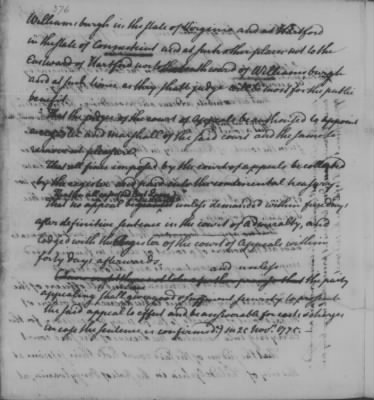 376
Williamsburgh in the state of Virginia and at Hartford
in the state of Connecticut and at such other places not to the
Eastward of Hartford nor to the southward of Williamsburgh
and at such times as they shall judge most for the public
benefit
That the judges of the court of Appeals be authorised to appoint
a register and marshall of the said court and the same to
remove at pleasure.
That all fines imposed by the court of appeals be collected
by the and paid into the continental treasury.
That no appeal be unless demanded within five days
after definitive sentence in the court of admiralty, and
lodged with the Register of the court of Appeals within
forty days afterwards. and unless
the party
appealing shall give security to prosecute
the said appeal to effect and be answerable for costs & charges
in case the sentence is confirmed.) in 25 Novr. 1775.